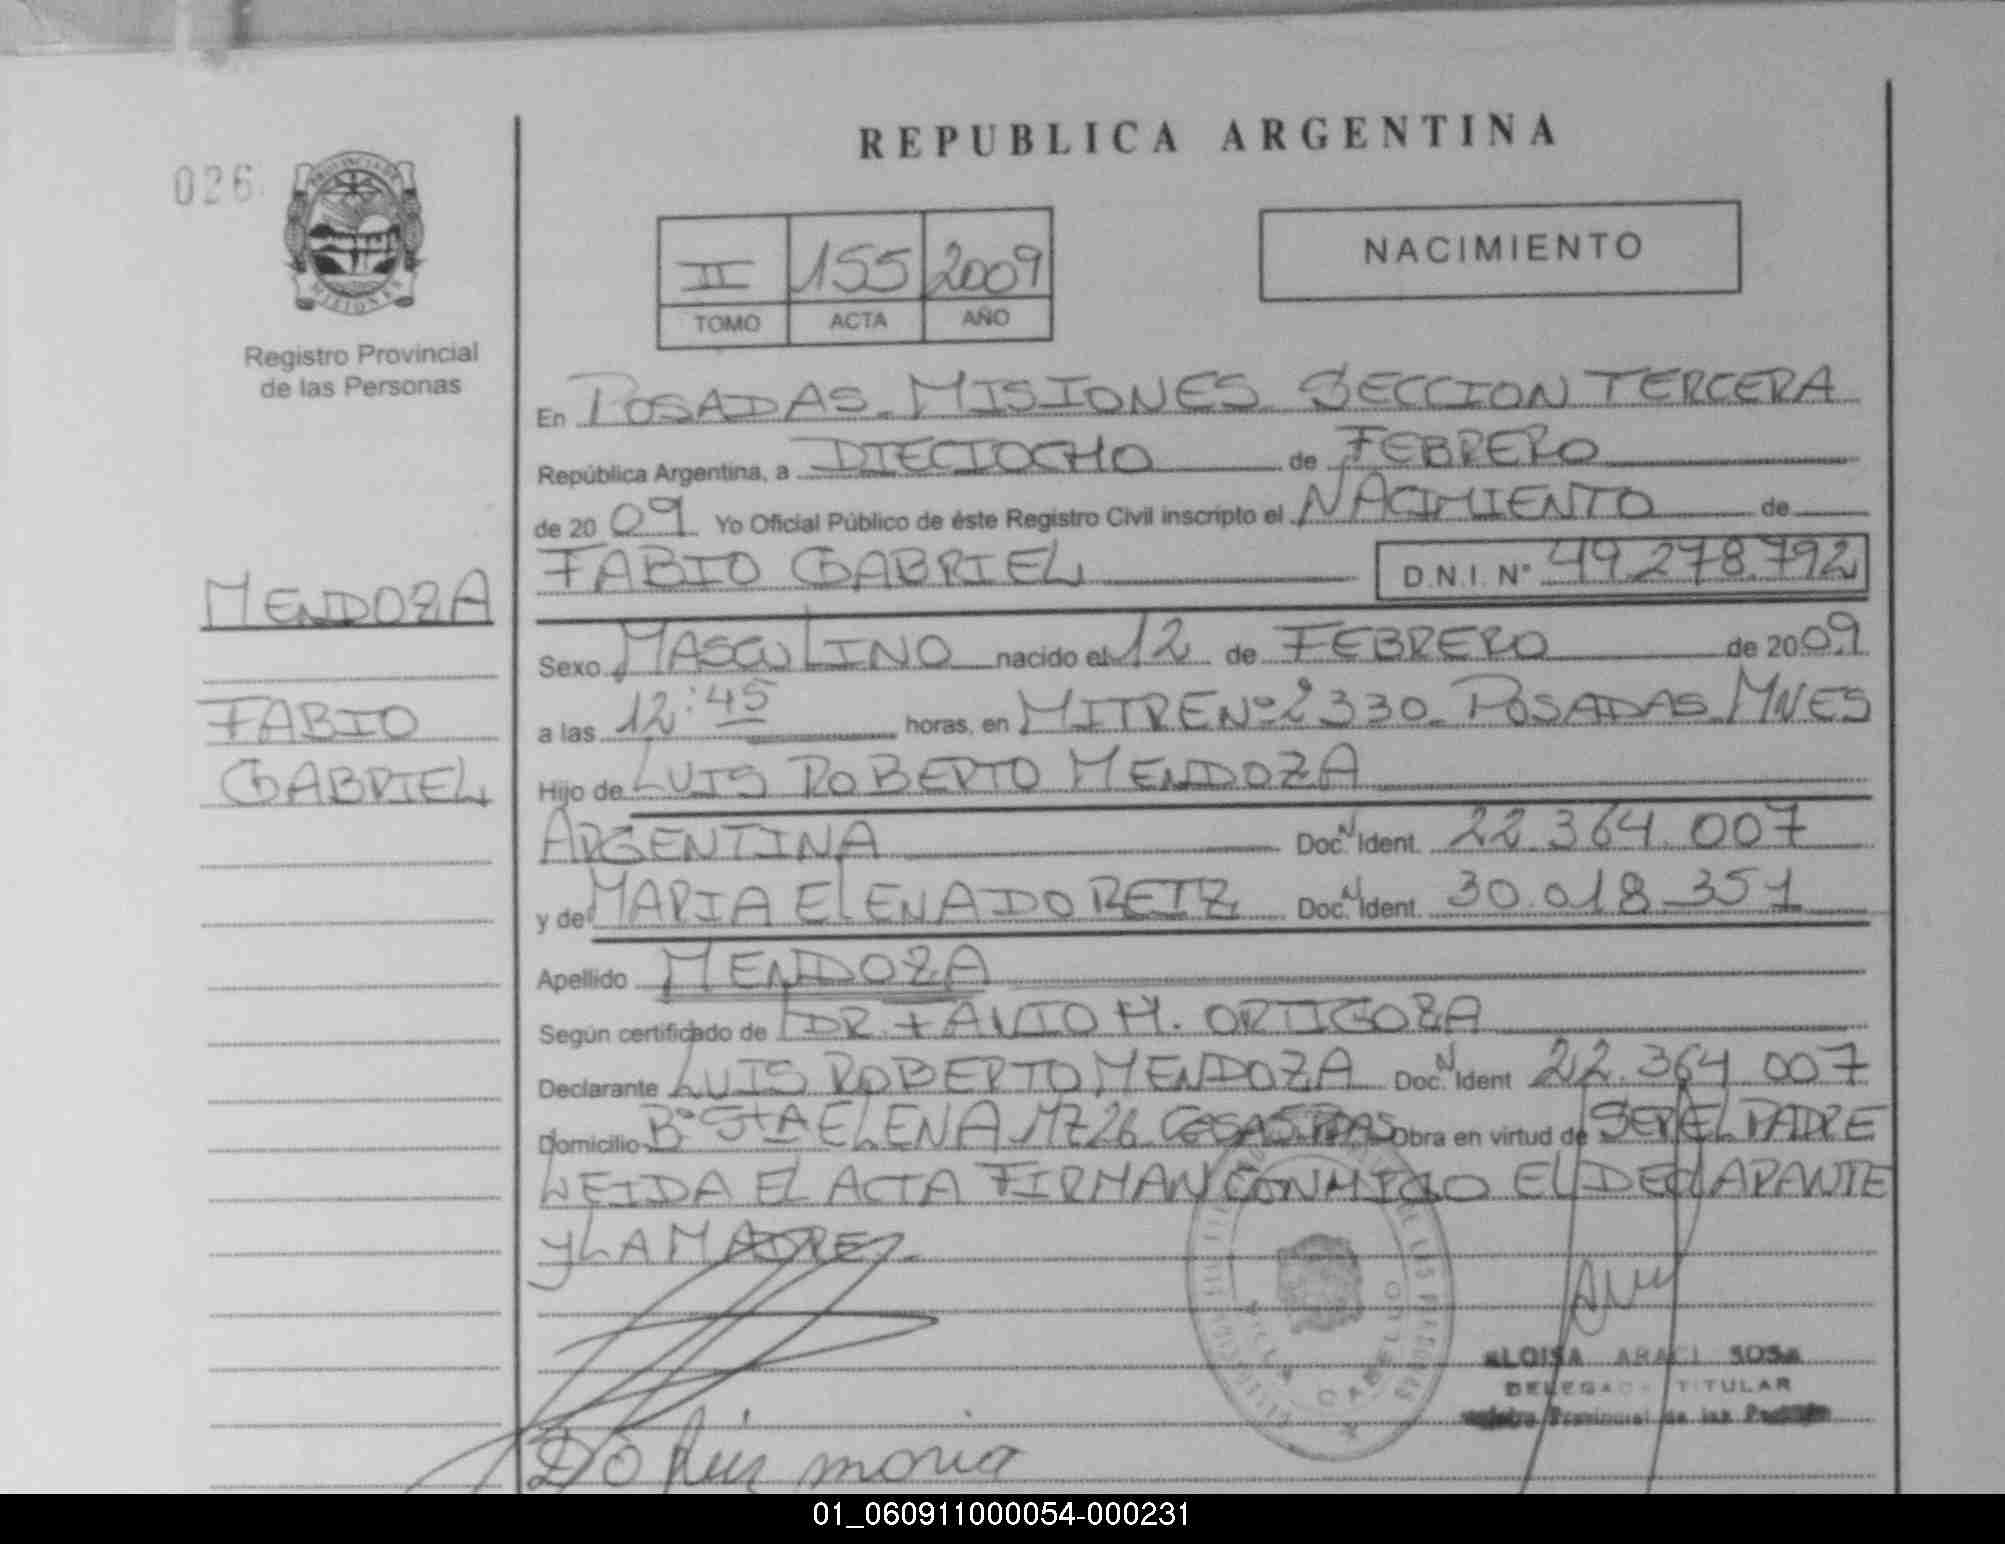 026
PROVINCIA DE
MISIONES
Registro Provincial
de las Personas
MENDOZA
FABIO
GABRIEL
REPUBLICA ARGENTINA
II 155 2009
TOMO ACTA AÑO
NACIMIENTO
En POSADAS - MISIONES SECCION TERCERA
República Argentina, a DIECIOCHO de FEBRERO
de 2009 Yo Oficial Público de éste Registro Civil inscripto el NACIMIENTO de
FABIO GABRIEL D.N.I. Nº 49.278.792
Sexo MASCULINO nacido el 12 de FEBRERO de 2009
a las 12:45 horas, en MITRE Nº 2330 - POSADAS MNES
Hijo de LUIS ROBERTO MENDOZA
ARGENTINA Doc. N Ident. 22.364.007
y de MARIA ELENA DO REIZ Doc. N Ident. 30.018.351
Apellido MENDOZA
Según certificado de DR. FAVIO M. ORTIGOZA
Declarante LUIS ROBERTO MENDOZA Doc. N Ident 22.364.007
Domicilio Bº StA ELENA MZ 26 Obra en virtud de SER EL PADRE
LEIDA EL ACTA FIRMAN CONMIGO EL DECLARANTE
Y LA MADRE.
VILLA CABELLO
ARACI SOSA
TITULAR
Provincial de las
maria
01_060911000054-000231